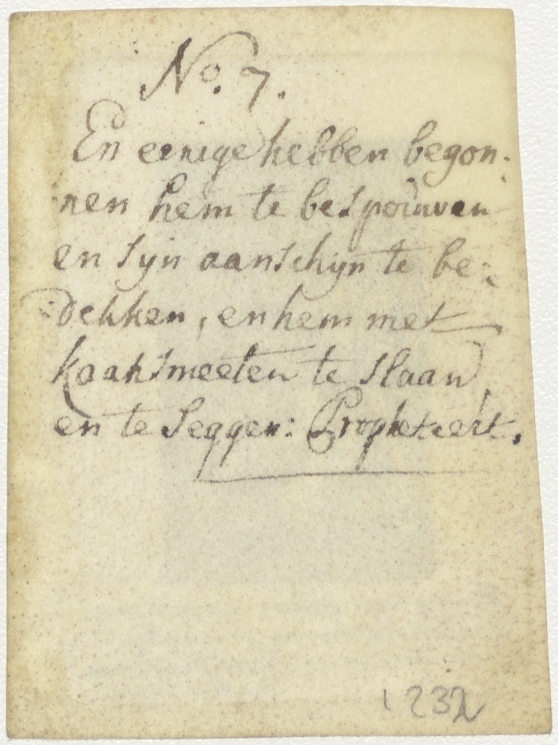 No. 7.
En eenige hebben begon-
nen hem te bespouwen
en syn aanschyn te be-
dekken, en hem met
kaaksmeeten te slaan,
en te seggen: Propheteert.
1232